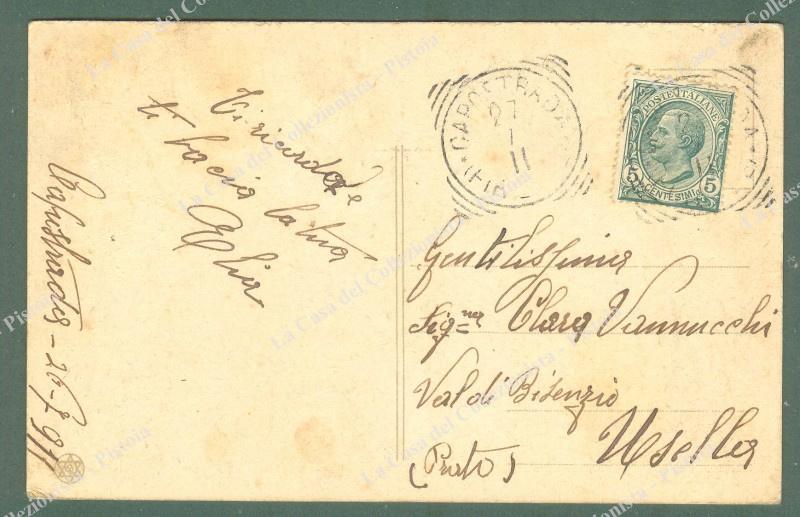 Ti ricorda e
ti bacia la tua
Elia
Capostrada - 26-7-911
CAPOSTRADA
27
11
POSTE ITALIANE
5 CENTESIMI 5
Gentilissima
Sig=na Clara Vannucchi
Val di Bisenzio
Usella
(Prato)
La Casa del Collezionista - Pistoia